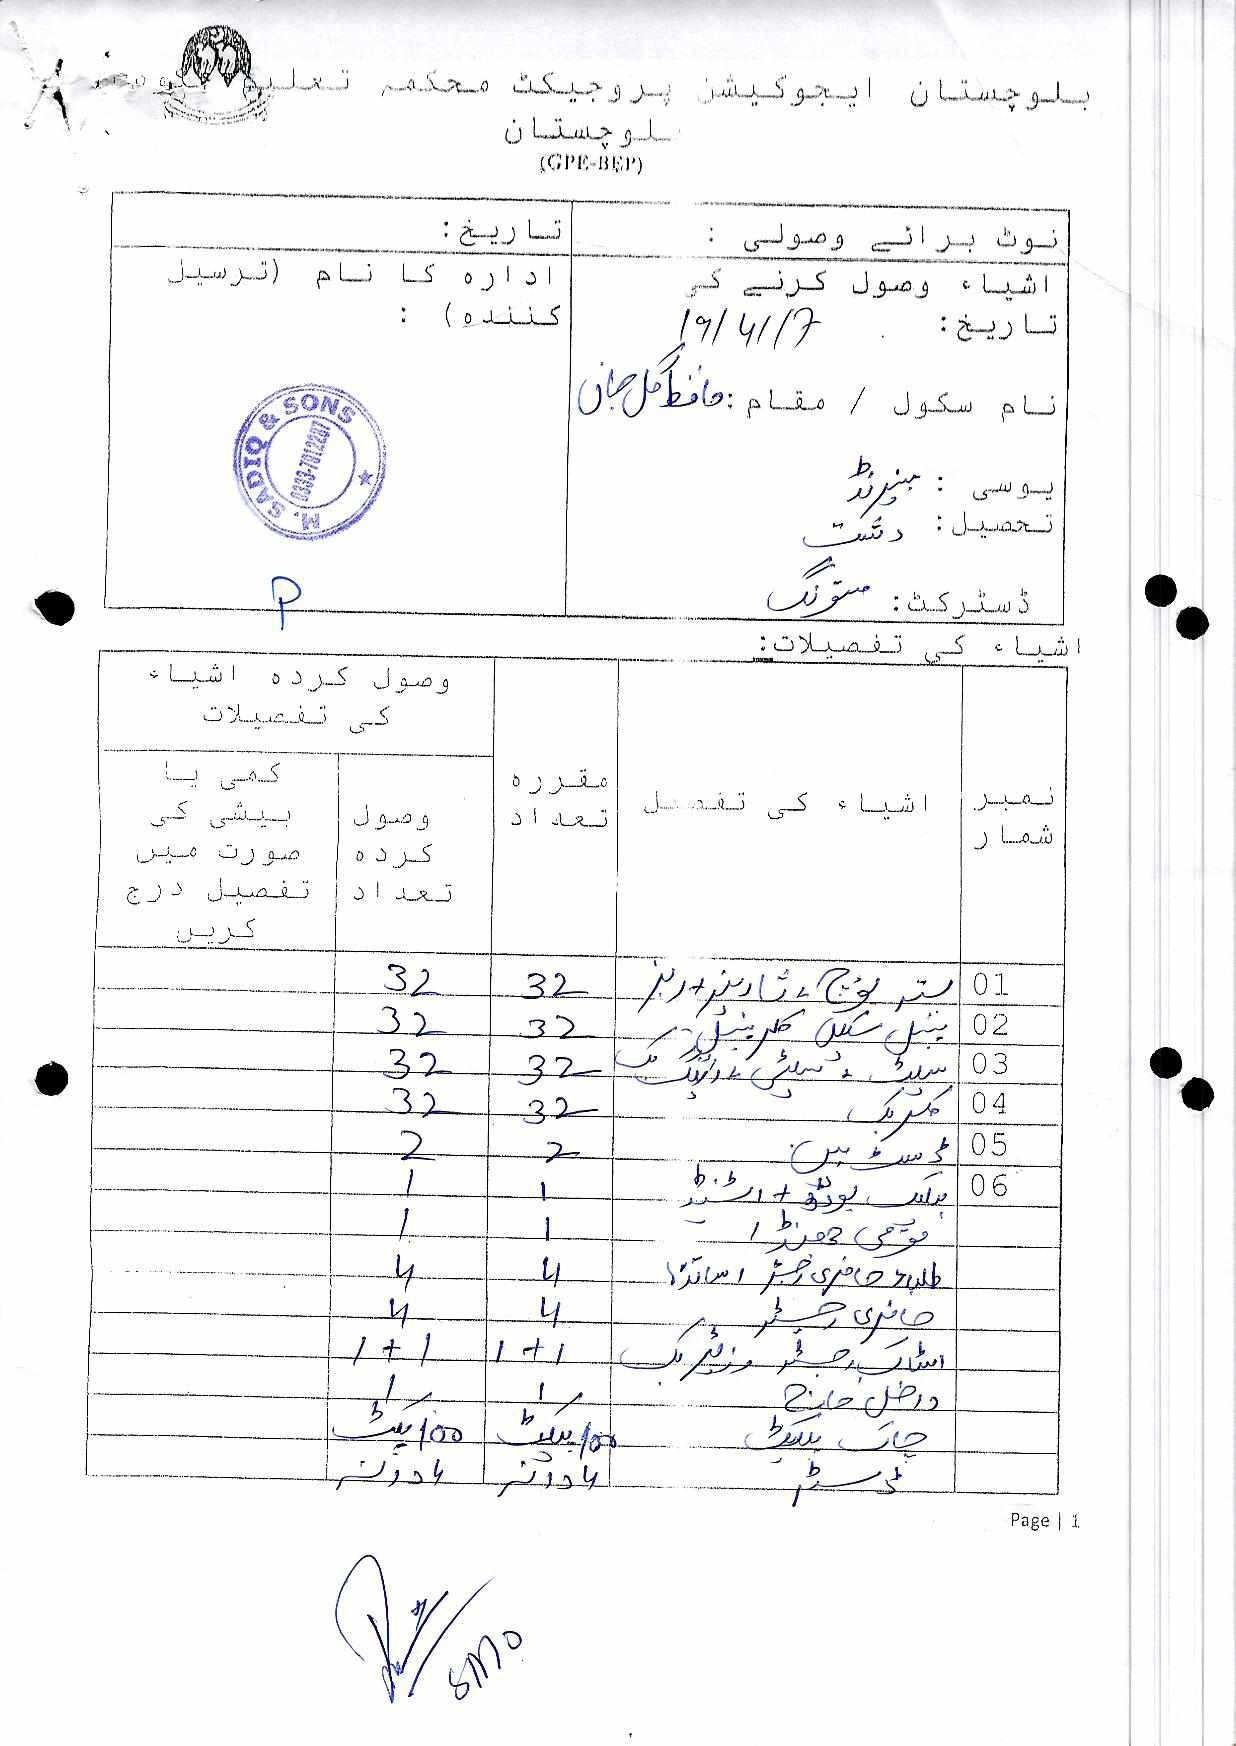 بلوچستان ایجوکیشن پروجیکٹ محکمہ تعلیم
بلوچستان
(GPE-BEP)
نوٹ برائے وصولی :
تاریخ:
اشیاء وصول کرنے کی
تاریخ: 19/4/17
نام سکول / مقام: حافظ گل جان
یوسی :
تحصیل: دشت
ڈسٹرکٹ: مستونگ
ادارہ کا نام (ترسیل
کنندہ) :
M. SADIQ & SONS
0333-7012287
P
اشیاء کی تفصیلات:
نمبر شمار
اشیاء کی تفصیل
مقررہ تعداد
وصول کردہ اشیاء کی تفصیلات
وصول کردہ تعداد
کمی یا بیشی کی صورت میں تفصیل درج کریں
01 32 32
02 پنسل سکیل کلر پنسل 32 32
03 سلیٹ ، سلیٹی ، ڈرائنگ بک 32 32
04 کلر بک 32 32
05 ڈسٹ بین 2 2
06 بلیک بورڈ + اسٹینڈ 1 1
قومی جھنڈا 1 1
طلباء حاضری رجسٹر اساتذہ 4 4
حاضری رجسٹر 4 4
اسٹاک رجسٹر وزیٹر بک 1+1 1+1
داخل خارج 1 1
چاک پیکٹ 100/پیکٹ 100/پیکٹ
ڈسٹر 4 درزنہ 4 درزنہ
Page | 1
SMO